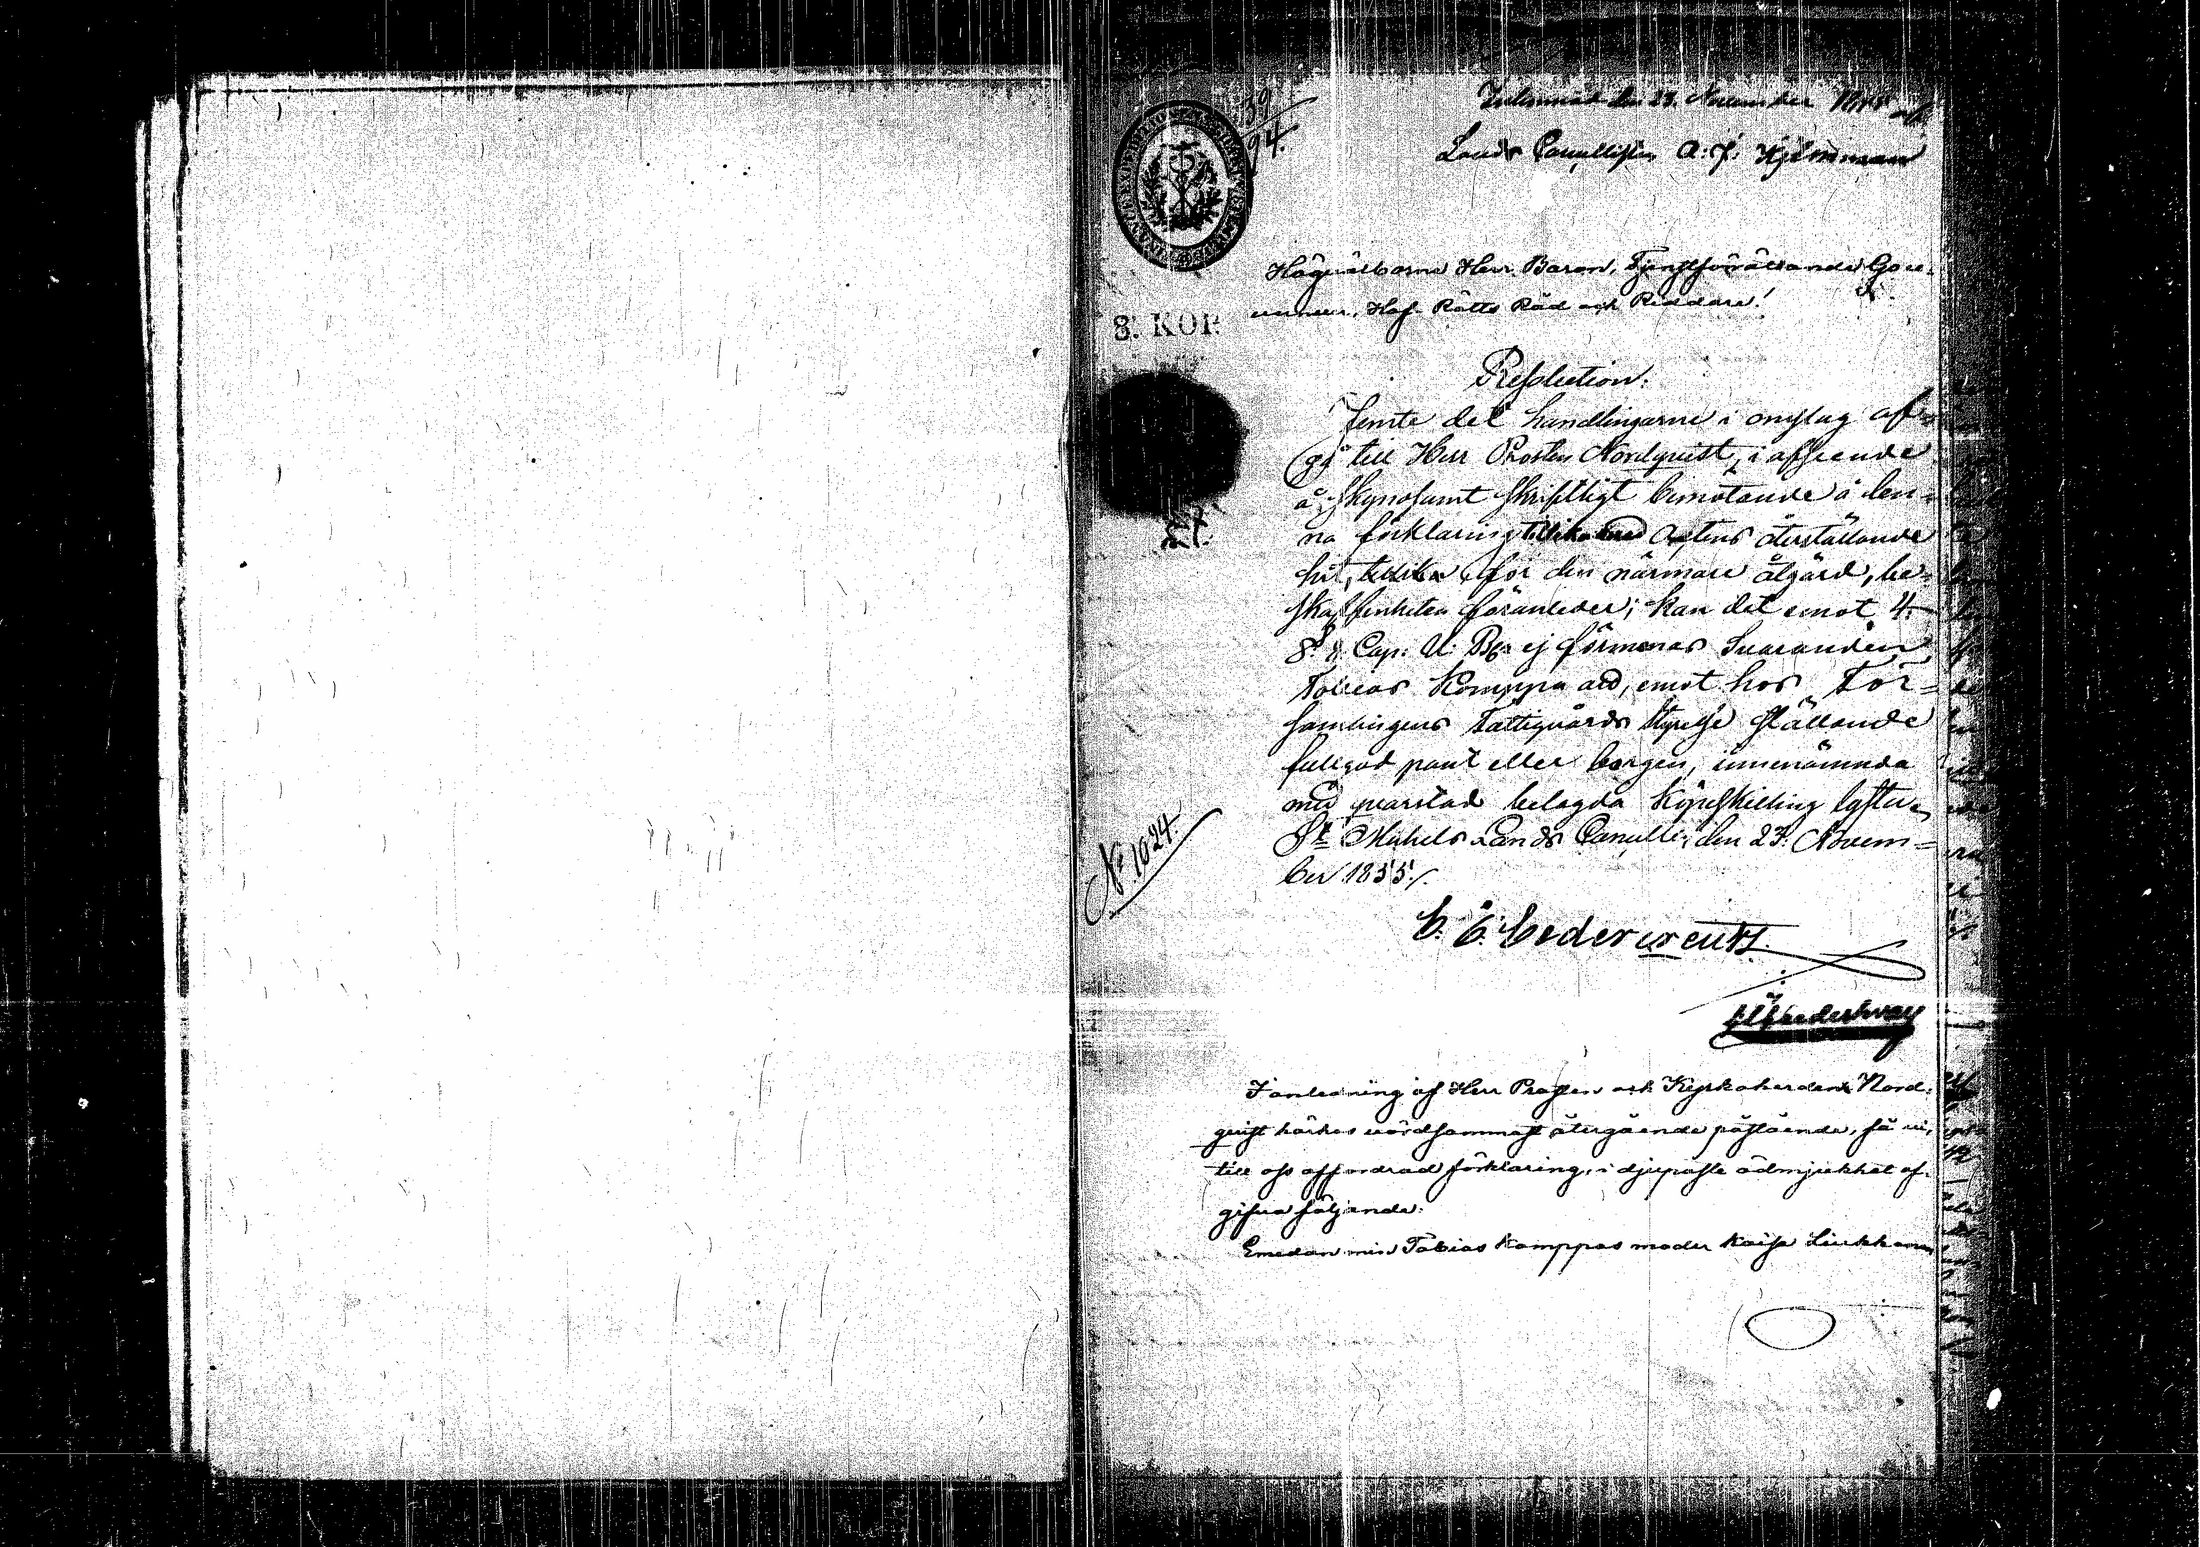 39
94.
Inlemnad den 23. November 1855 af
Lands Cancellisten A. F.
Högvälborne Herr Baron, Tjenstförrättande Gou-
verneur, Hof-Rätts Råd och Riddare!
8. KOP.
Resolution:
Jemte det handlingarne i omslag af-
gå till Herr Prosten Nordqvist, i afseende
å skyndsamt skriftligt bemötande å den-
na förklaring tillika med Actens återställande
hit, för den närmare åtgärd, be-
skaffenheten föranleder; kan det emot 4.
§. 8 Cap. U. B. ej förmenas Svaranden
Tobias Komppa att, emot hos För-
samlingens Fattigvårds Styrelse ställande
fullgod pant eller borgen, innenämnda
med qvarstad belagda Köpeskilling lyfta.
St Michels Lands Cancelli, den 23. Novem-
ber 1855./.
No 1024.
C. E. Cedercreutz.
I anledning af Herr Prosten och Kyrkoherden Nord-
qvist härhos vördsammast återgående påstående, få vi,
till oss affordrad förklaring, i djupaste ödmjukhet af-
gifva följande:
Emedan min Tobias Komppas moder Kaisa Liukkonen